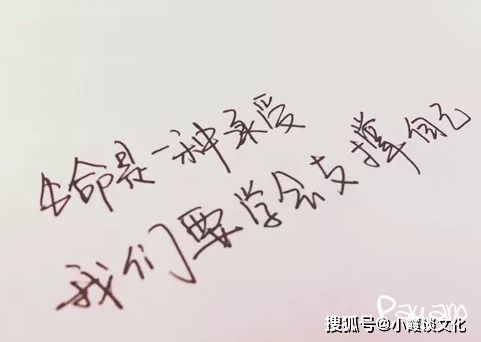 生命是一种承受
我们要学会支撑自己
Payann
搜狐号@小霞谈文化